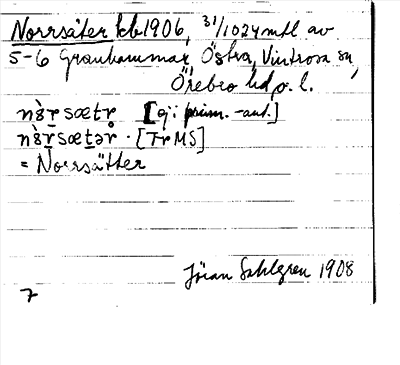 Norrsäter kb 1906, 31/1024 mtl av
5-6 Granhammar, Östra, Vintrosa sn,
Örebro hd ö. l.
nòr̄sætr [ej: prim. -aut.]
nòr̄sætər · [Tr MS]
= Norrsätter
Jöran Sahlgren 1908
7